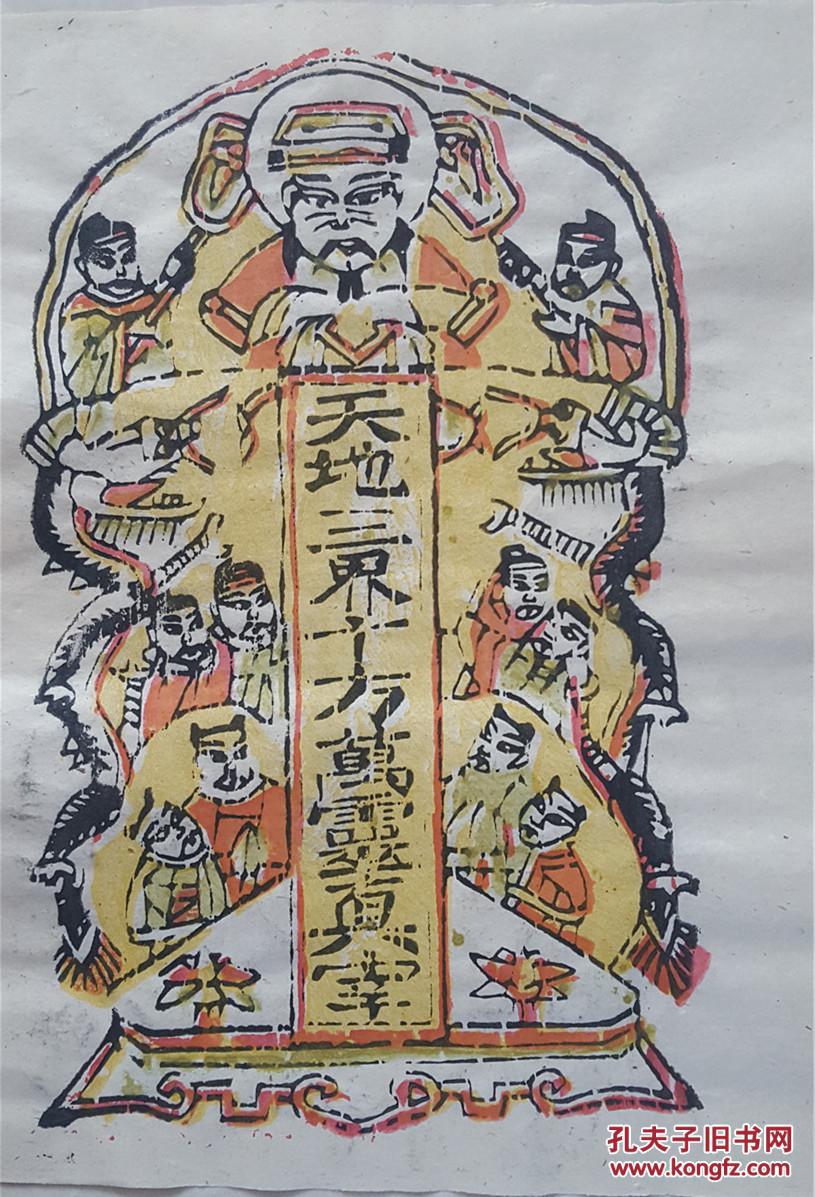 天地三界十方萬靈真宰
孔夫子旧书网
www.kongfz.com